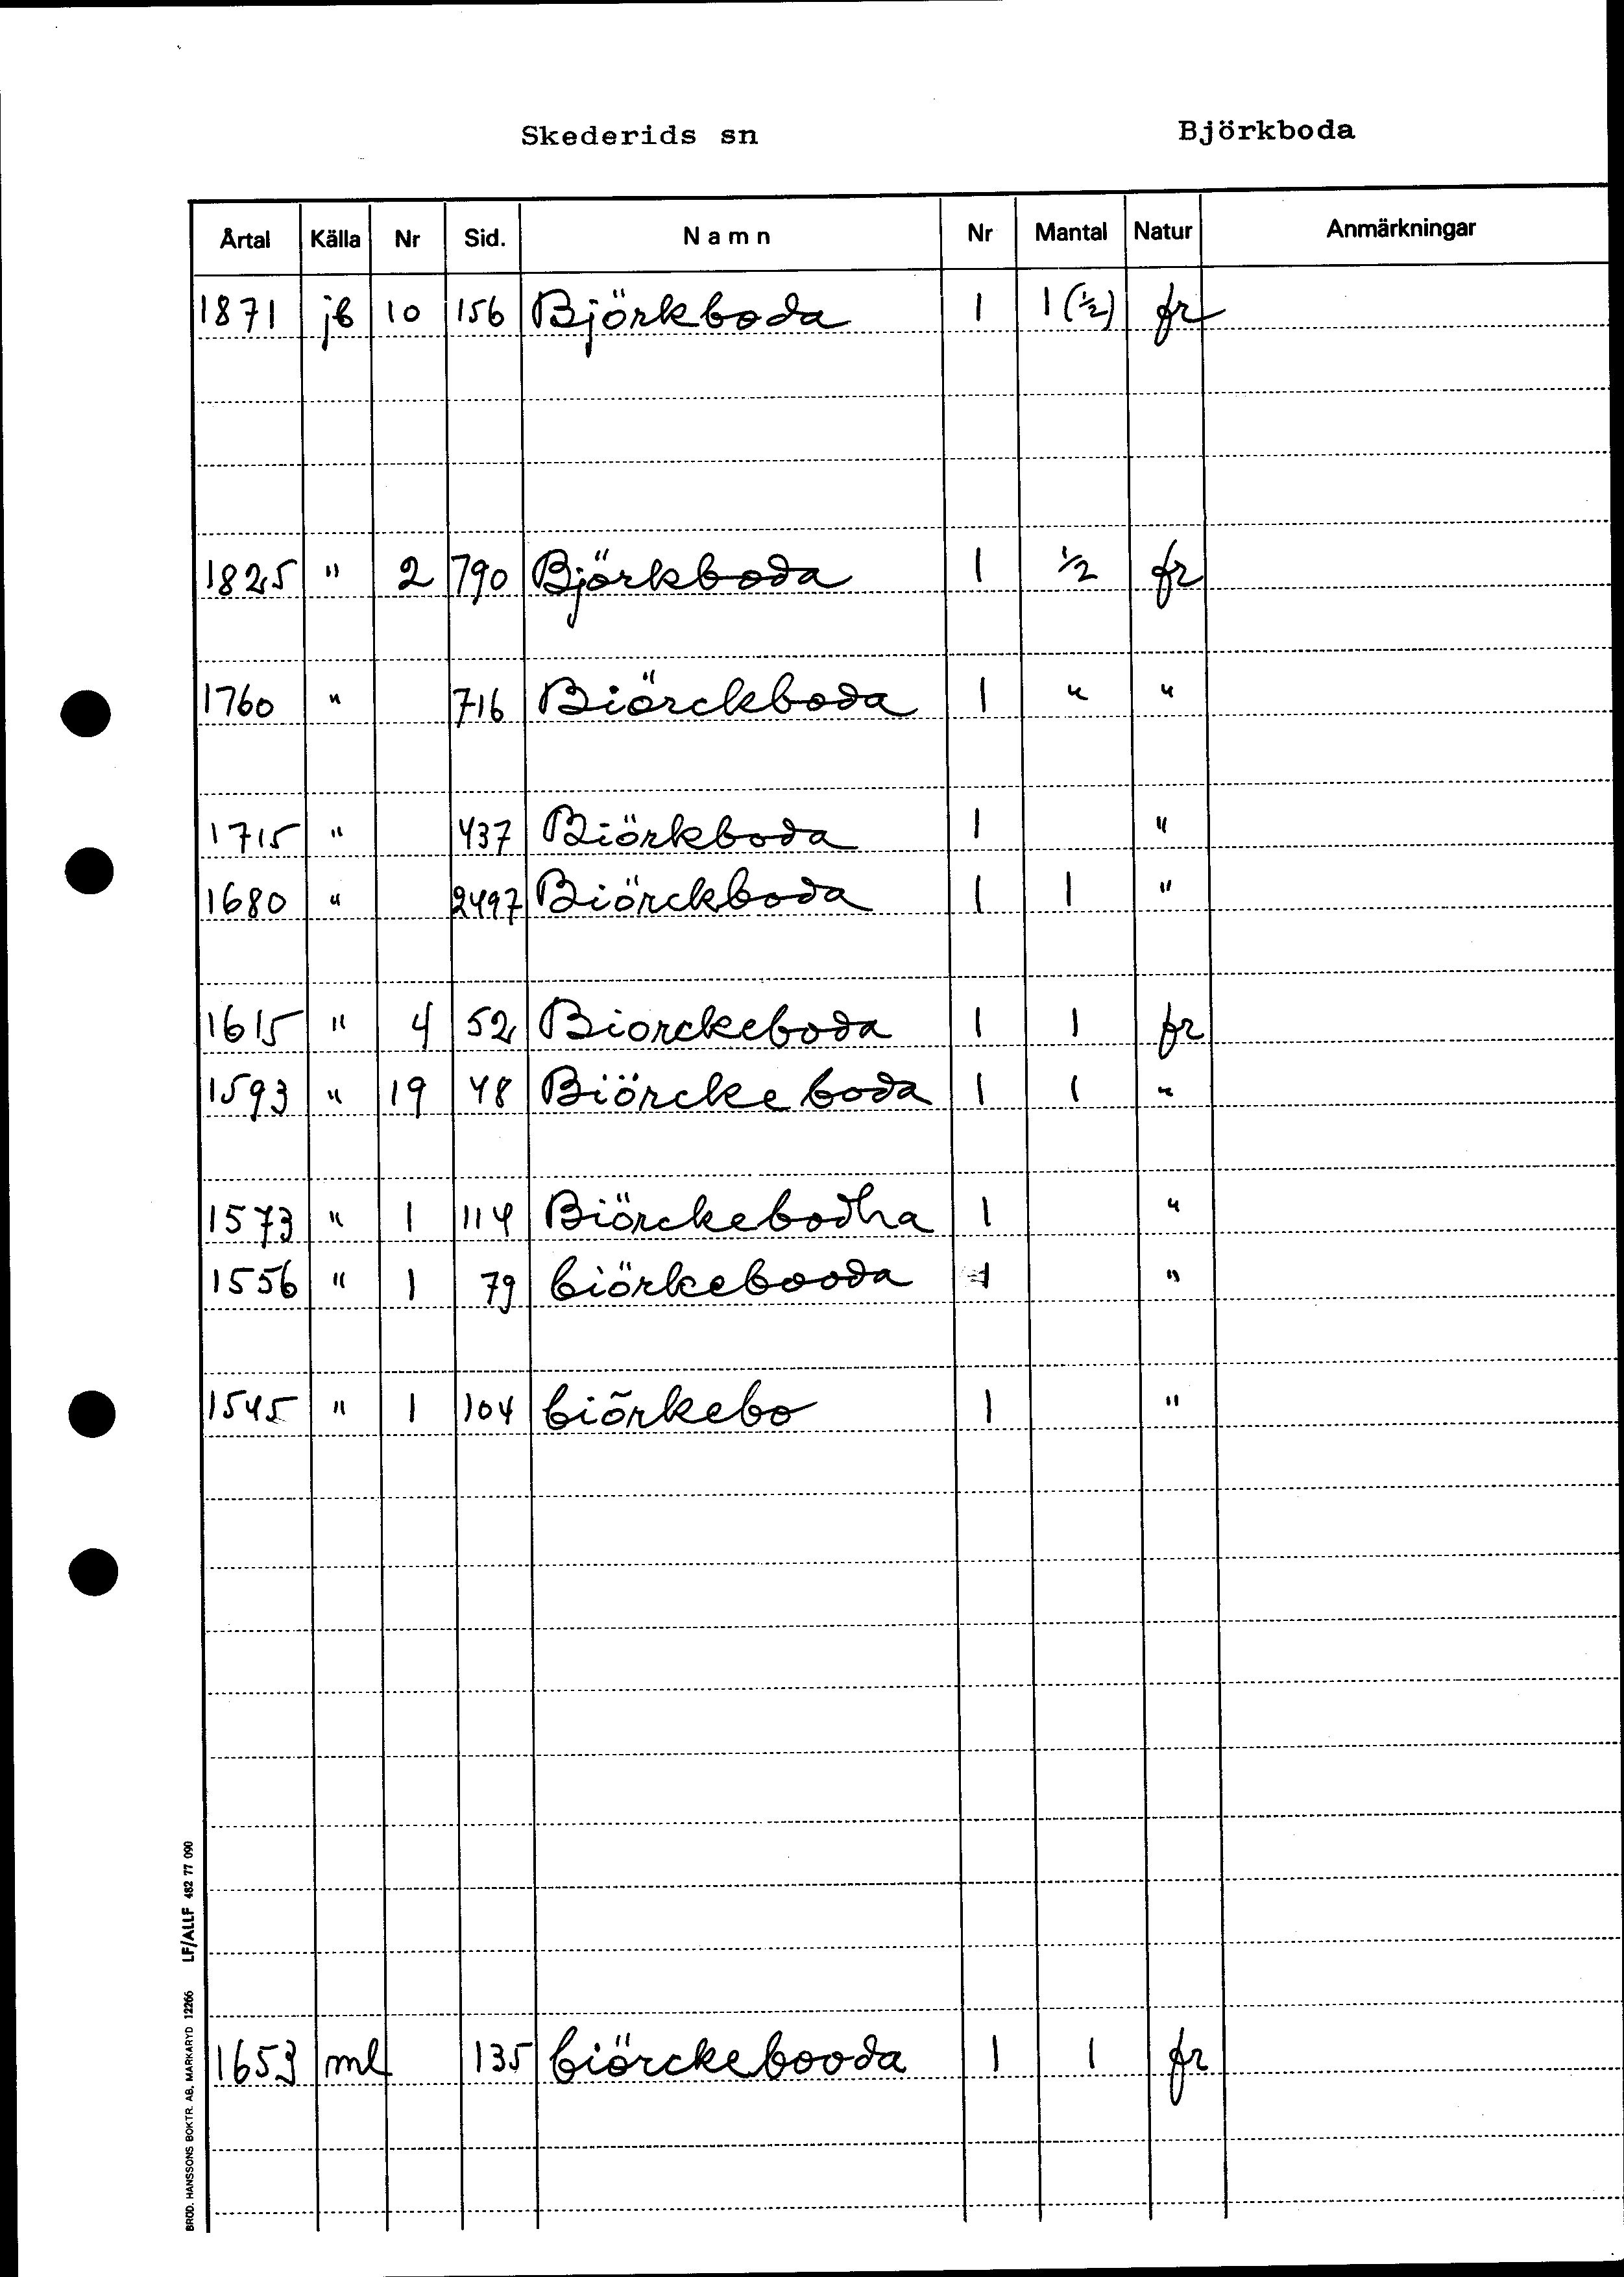 Skederids sn Björkboda
Årtal Källa Nr Sid. Namn Nr Mantal Natur Anmärkningar
1871 jb 10 156 Björkboda 1 1 (½) fr
1825 " 2 790 Björkboda 1 ½ fr
1760 " 716 Biörckboda 1 " "
1715 " 437 Biörkboda 1 "
1680 " 2497 Biörckboda 1 1 "
1615 " 4 52 Biorckeboda 1 1 fr
1593 " 19 48 Biörcke boda 1 1 "
1573 " 1 114 Biörckebodha 1 "
1556 " 1 79 biörkebooda 1 "
1545 " 1 104 biõrkebo 1 "
1653 ml 135 biörckebooda 1 1 fr
BRÖD. HANSSONS BOKTR. AB, MARKARYD 12266 LF/ALLF 482 77 090